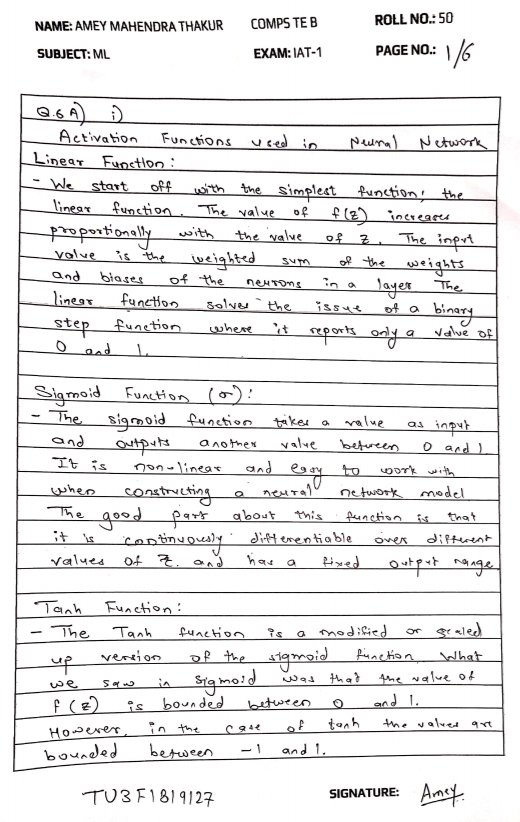 NAME: AMEY MAHENDRA THAKUR COMPS TE B ROLL NO.: 50
SUBJECT: ML EXAM: IAT-1 PAGE NO.: 1/6
Q.6 A) i)
Activation Functions used in Neural Network
Linear Function:
- We start off with the simplest function; the
linear function. The value of f(z) increases
proportionally with the value of z. The input
value is the weighted sum of the weights
and biases of the neurons in a layer The
linear function solves the issue of a binary
step function where it reports only a value of
0 and 1.
Sigmoid Function (σ):
- The sigmoid function takes a value as input
and outputs another value between 0 and 1.
It is non-linear and easy to work with
when constructing a neural network model
The good part about this function is that
it is continuously differentiable over different
values of z. and has a fixed output range
Tanh Function:
- The Tanh function is a modified or scaled
up version of the sigmoid function. What
we saw in sigmoid was that the value of
f(z) is bounded between 0 and 1.
However, in the case of tanh the values are
bounded between -1 and 1.
TU3F1819127 SIGNATURE: Amey.